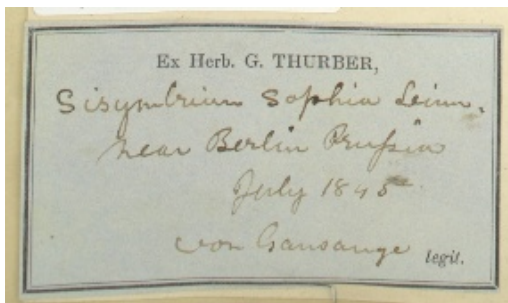 Ex Herb. G. THURBER,
Sisymbrium Sophia Linn.
near Berlin Prussia
July 1845
von Gansauge legit.